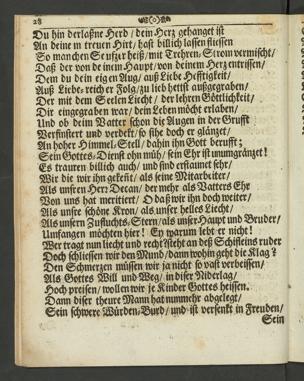 28 (0)
Du hin derlaßne Herd / dein Herz gehanget ist
An deinem treuen Hitt / hast billich lassen fliessen
So manchen Seufzer heiß / mit Trehren / Strom vermischt /
Daß der von deinem Haupt / von deinem Herz entrissen /
Dem du dein eigen Aug / auß Liebe Hefftigkeit /
Auß Liebe reicher Folg / zu lieb hettst außgegraben /
Der mit dem Seelen Liecht / der lehren Göttlichkeit /
Dir eingegraben war / dein Leben möcht erlaben /
Und ob deim Vatter schon die Augen in der Grufft
Verfinstert und verdekt / so sihe doch er glänzet /
An hoher Himmel-Stell / dahin ihn Gott berufft;
Sein Gottes-Dienst ohn müh / sein Ehr ist unumgränzet!
Es trauren billich auch / und sind erstaunet sehr /
Wir die wir ihn gekent / als seine Mitarbeiter /
Als unsren Herr Decan / der mehr als Vatters Ehr
Von uns hat meritiert / O daß wir ihn doch weiter /
Als unsre schöne Kron / als unser helles Liecht /
Als unsern Zufluchts-Stern / als unser Haupt und Bruder /
Umfangen möchten hier! Ey warum lebt er nicht!
Wer tragt nun liecht und recht? steht an deß Schiffleins ruder
Doch schliessen wir den Mund / dann wohin geht die Klag?
Den Schmerzen müssen wir ja nicht so vast verbeissen /
Als Gottes Will und Weg / in diser Niderlag /
Hoch preisen / wollen wir je Kinder Gottes heissen.
Dann diser theure Mann hat nunmehr abgelegt /
Sein schwere Würden-Burd / und ist versenkt in Freuden /
Sein